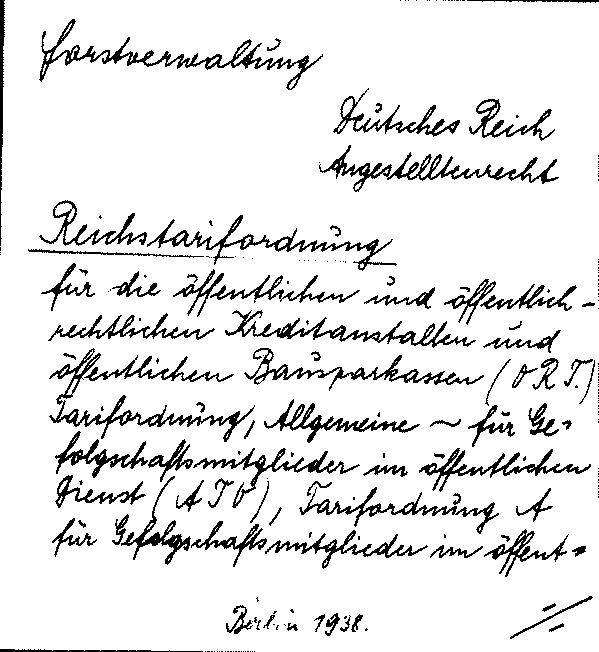 Forstverwaltung
Deutsches Reich
Angestelltenrecht
Reichstarifordnung
für die öffentlichen und öffentlich-
rechtlichen Kreditanstalten und
öffentlichen Bausparkassen (O R T.)
Tarifordnung, Allgemeine ~ für Ge=
folgschaftsmitglieder im öffentlichen
Dienst (A T O), Tarifordnung A
für Gefolgschaftsmitglieder im öffent=
Berlin 1938.